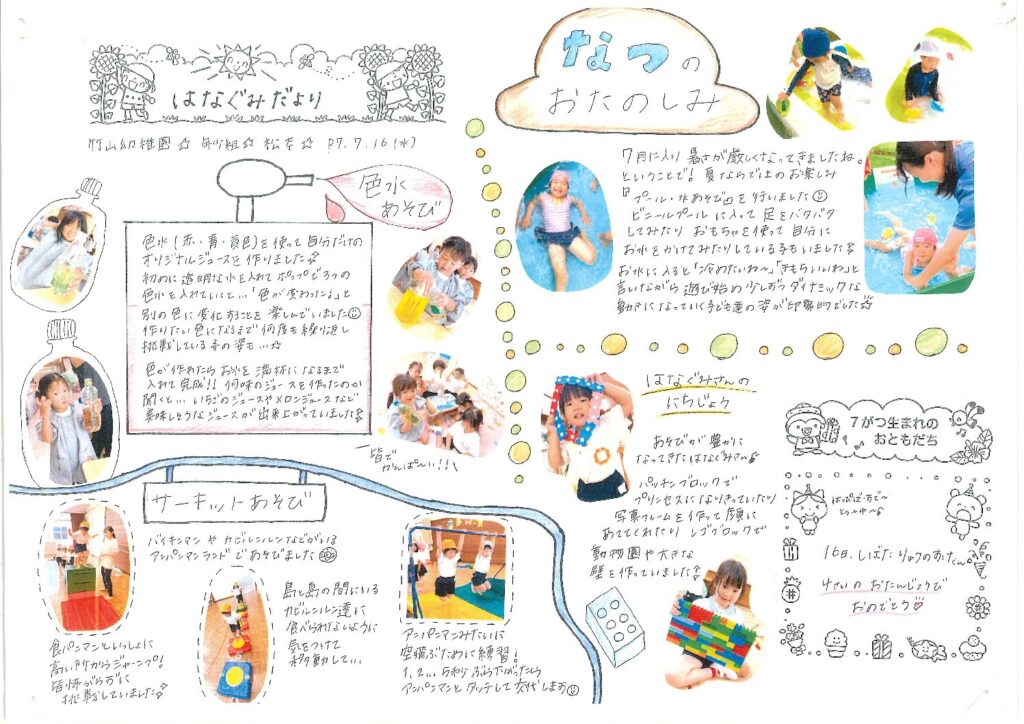 はなぐみだより
竹山幼稚園 ☆ 年少組 ☆ 松本 ☆ R7.7.16(水)
色水
あそび
色水(赤・青・黄色)を使って自分だけの
オリジナルジュースを作りました♪
初めに透明な水を入れてポンプで3つの
色水を入れていくと…「色が変わった!」と
別の色に変化することを楽しんでいました
作りたい色になるまで何度も繰り返し
挑戦している子の姿も…☆
色が作れたらお水を満杯になるまで
入れて完成!!何味のジュースを作ったのか
聞くと…いちごのジュースやメロンジュースなど
美味しそうなジュースが出来上がっていました♪
皆で
かんぱ〜い!!
なつの
おたのしみ
7月に入り暑さが厳しくなってきましたね。
ということで!夏ならではのお楽しみ
『プール・水あそび』を行いました
ビニールプールに入って足をバタバタ
してみたりおもちゃを使って自分に
お水をかけてみたりしている子もいました♪
お水に入ると「冷めたいね〜」「きもちいいね」と
言いながら遊び始め少しずつダイナミックな
動きになっていく子ども達の姿が印象的でした☆
はなぐみさんの
にちじょう
あそびが豊かに
なってきたはなぐみさん♪
パッチンブロックで
プリンセスになりきっていたり
写真フレームを作って顔に
あててくれたりレゴブロックで
動物園や大きな
壁を作っていました♪
7がつ生まれの
おともだち
はっぴばーすでー
とぅーゆー♪
16日.しばた りゅうのすけくん
4さいのおたんじょうび
おめでとう♡
サーキットあそび
バイキンマンやカビルンルンなどがいる
アンパンマンランドであそびました
食パンマンといっしょに
高い所からジャーンプ!
皆怖がらずに
挑戦していました♪
島と島の間にいる
カビルンルン達に
食べられないように
気をつけて
移動して…
アンパンマンみたいに
空飛ぶために練習!
1,2…5秒ぶらさがったら
アンパンマンとタッチして交代します